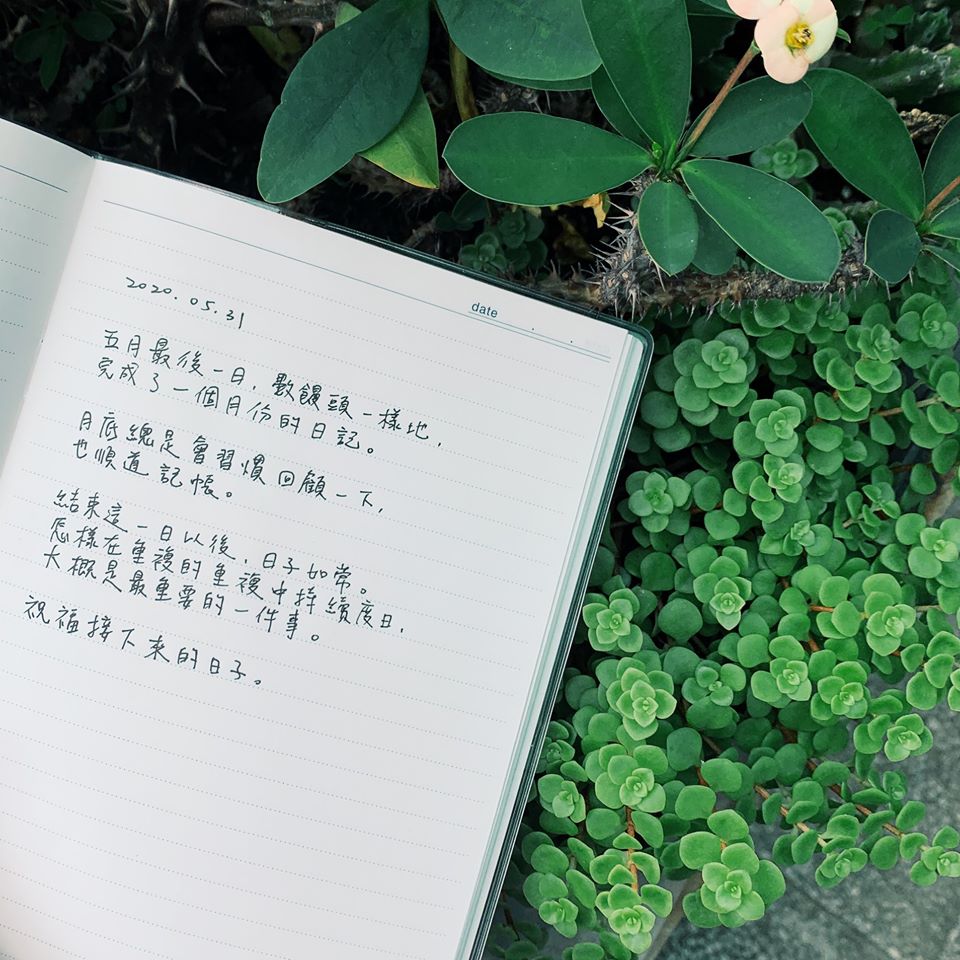 date
2020.05.31
五月最後一日，數饅頭一樣地，
完成了一個月份的日記。
月底總是會習慣回顧一下，
也順道記帳。
結束這一日以後，日子如常。
怎樣在重複的重複中持續度日，
大概是最重要的一件事。
祝福接下來的日子。